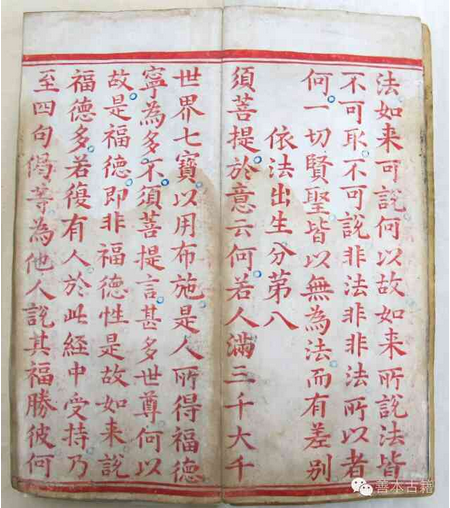 法如来可說何以故如来所說法皆
不可取不可說非法非非法所以者
何一切賢聖皆以無為法而有差別
依法出生分第八
須菩提於意云何若人滿三千大千
世界七寶以用布施是人所得福德
寧為多不須菩提言甚多世尊何以
故是福德即非福德性是故如来說
福德多若復有人於此經中受持乃
至四句偈等為他人說其福勝彼何
善本古籍